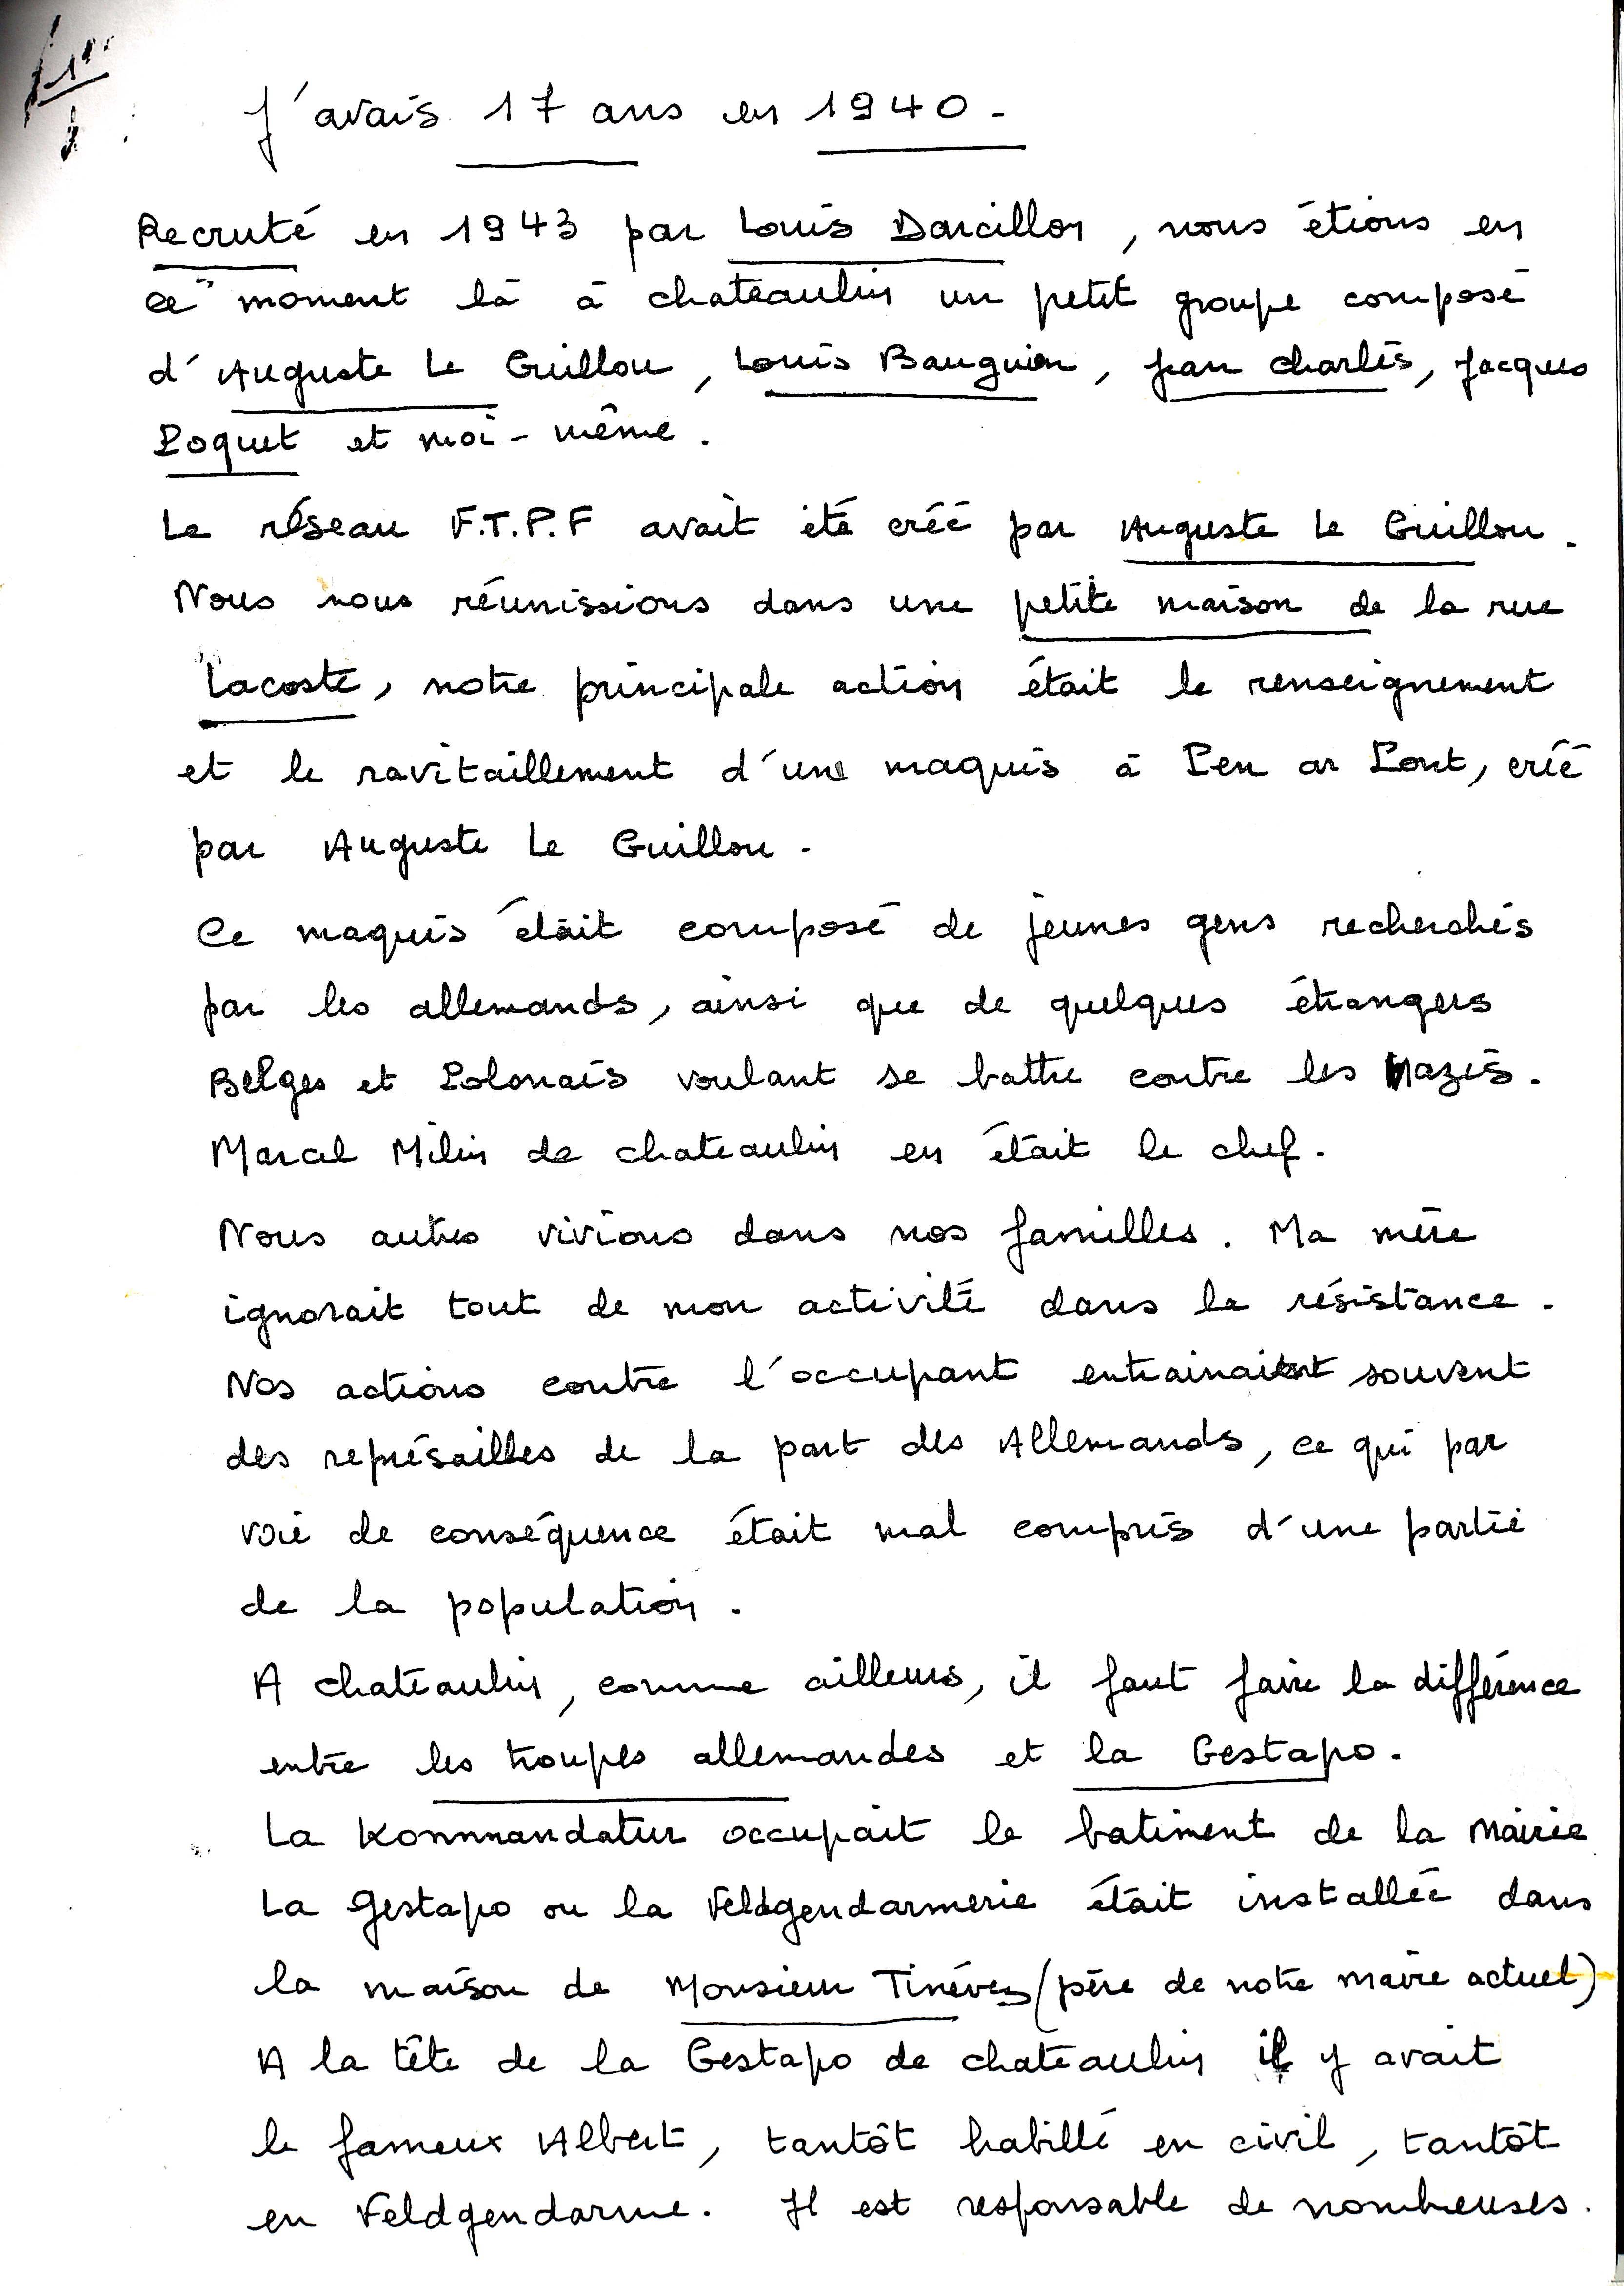 1er
J'avais 17 ans en 1940 -
Recruté en 1943 par Louis Darcillon, nous étions en
ce moment là à chateaulin un petit groupe composé
d'Auguste Le Guillou, Louis Bauguion, jean charles, jacques
Poquet et moi-même.
Le réseau F.T.P.F avait été créé par Auguste Le Guillou.
Nous nous réunissions dans une petite maison de la rue
Lacoste, notre principale action était le renseignement
et le ravitaillement d'une maquis à Pen ar Pont, créé
par Auguste Le Guillou -
Ce maquis était composé de jeunes gens recherchés
par les allemands, ainsi que de quelques étrangers
Belges et Polonais voulant se battre contre les Nazis.
Marcel Milin de chateaulin en était le chef.
Nous autres vivions dans nos familles. Ma mère
ignorait tout de mon activité dans la résistance.
Nos actions contre l'occupant entrainaient souvent
des représailles de la part des Allemands, ce qui par
voie de conséquence était mal compris d'une partie
de la population.
A chateaulin, comme ailleurs, il faut faire la différence
entre les troupes allemandes et la Gestapo.
La Kommandatur occupait le batiment de la Mairie
La Gestapo ou la Feldgendarmerie était installée dans
la maison de Monsieur Tinévez (père de notre maire actuel)
A la tête de la Gestapo de chateaulin il y avait
le fameux Albert, tantôt habillé en civil, tantôt
en Feldgendarme. Il est responsable de nombreuses.